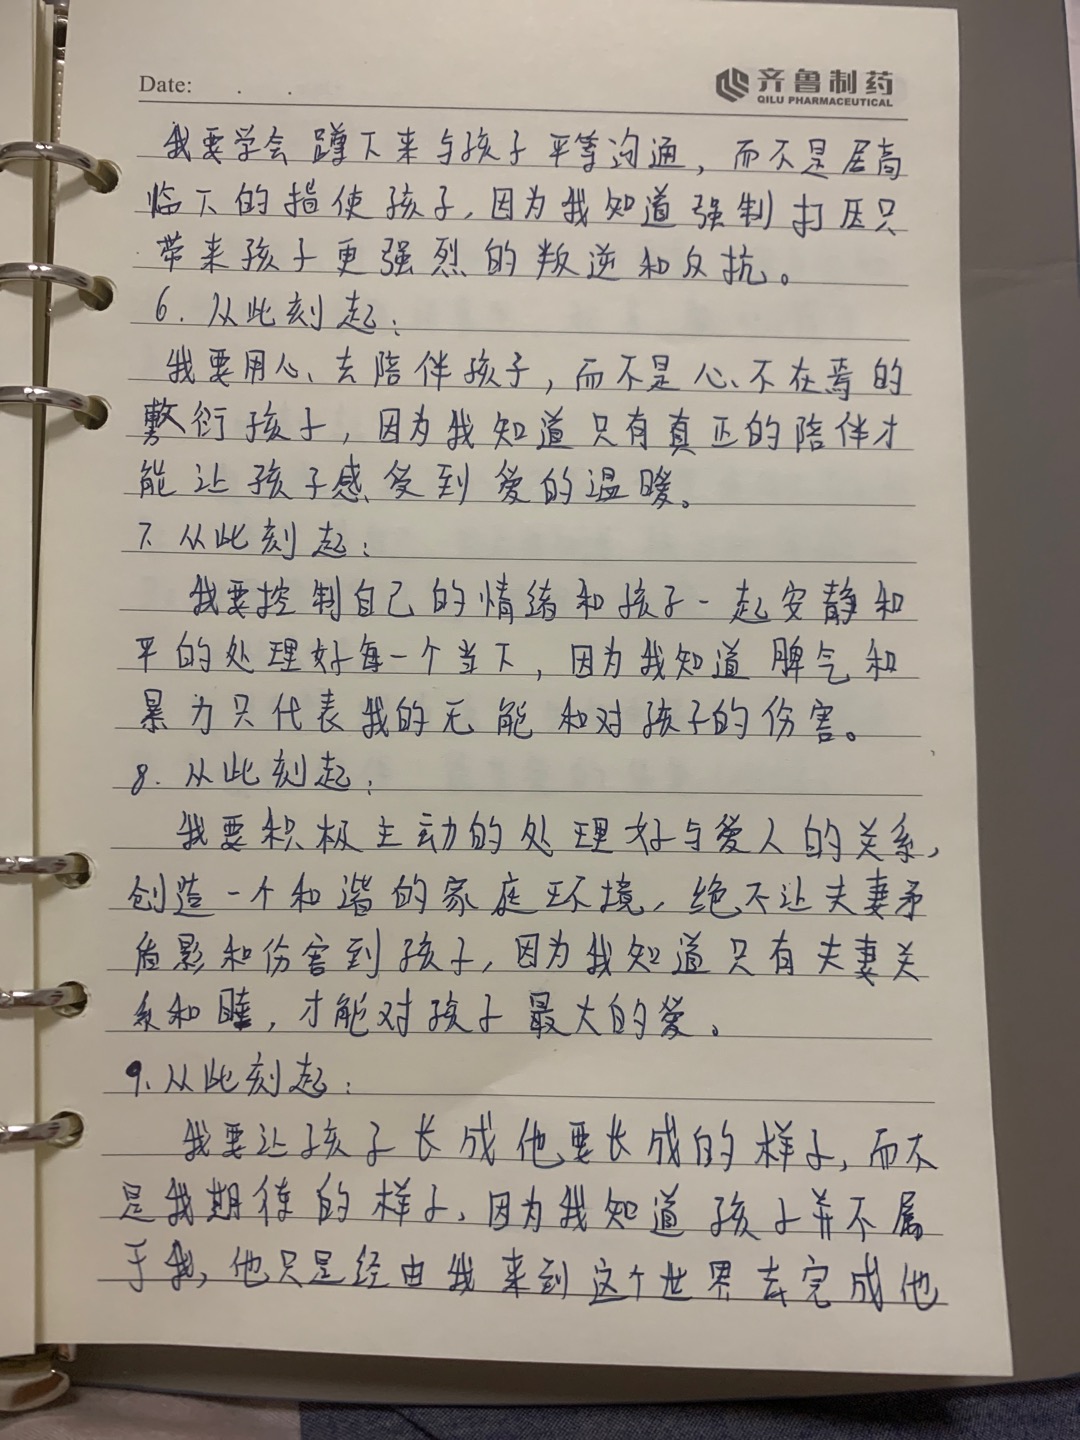 Date: . .
齐鲁制药
QILU PHARMACEUTICAL
我要学会蹲下来与孩子平等沟通，而不是居高
临下的指使孩子，因为我知道强制打压只
带来孩子更强烈的叛逆和反抗。
6. 从此刻起：
我要用心、去陪伴孩子，而不是心、不在焉的
敷衍孩子，因为我知道只有真正的陪伴才
能让孩子感受到爱的温暖。
7. 从此刻起：
我要控制自己的情绪和孩子一起安静和
平的处理好每一个当下，因为我知道脾气和
暴力只代表我的无能和对孩子的伤害。
8. 从此刻起：
我要积极主动的处理好与爱人的关系，
创造一个和谐的家庭环境，绝不让夫妻矛
盾影和伤害到孩子，因为我知道只有夫妻关
系和睦，才能对孩子最大的爱。
9. 从此刻起：
我要让孩子长成他要长成的样子，而不
是我期待的样子，因为我知道孩子并不属
于我，他只是经由我来到这个世界去完成他